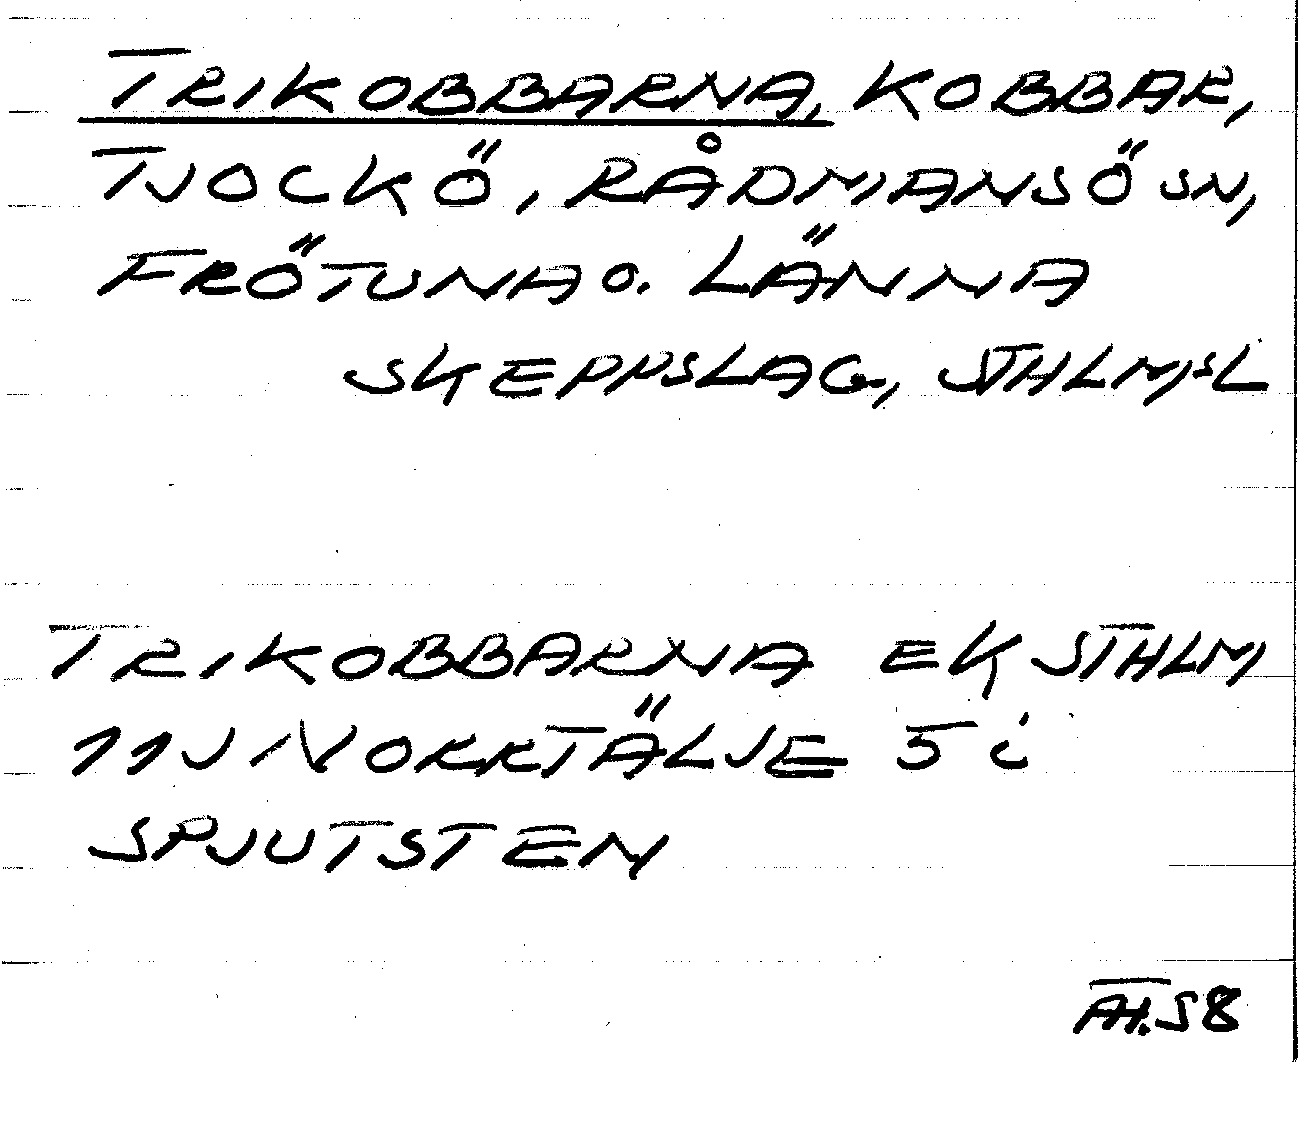 TRIKOBBARNA, KOBBAR,
TJOCKÖ, RÅDMANSÖ SN,
FRÖTUNA O. LÄNNA
SKEPPSLAG, STHLMSL
TRIKOBBARNA EK STHLM
11J NORRTÄLJE 5 i
SPJUTSTEN
TH.58